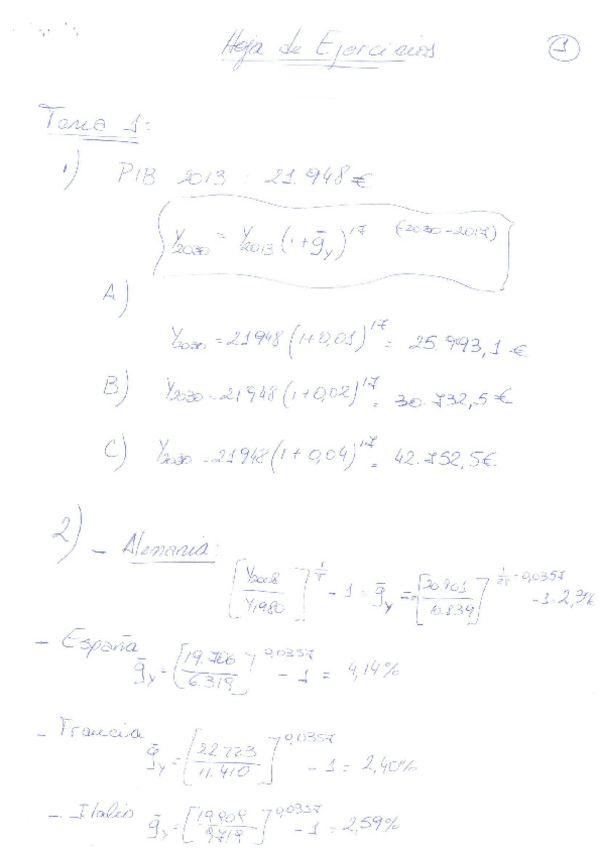 Hoja de Ejercicios
1
Tarea 1:
1) PIB 2013 : 21.948 €
Y2030 = Y2013 (1+ḡy)^17 (2030-2013)
A)
Y2030 = 21948 (1+0,01)^17 = 25.993,1 €
B) Y2030 = 21948 (1+0,02)^17 = 30.732,5 €
C) Y2030 = 21948 (1+0,04)^17 = 42.752,5 €
2) - Alemania:
[Y2008 / Y1980] - 1 = ḡy = -1 = 2,3%
- España
ḡy = [19.706 / 6.319]^0,0357 - 1 = 4,14%
- Francia
ḡy = [22.723 / 11.410]^0,0357 - 1 = 2,40%
- Italia ḡy = [19909 / 9719]^0,0357 - 1 = 2,59%